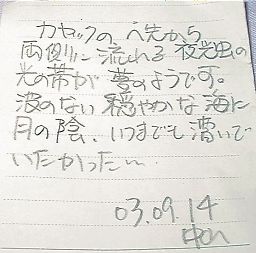 カヤックの、へ先から
両側に流れる夜光虫の
光の帯が夢のようです。
波のない穏やかな海に
月の陰、いつまでも漕いで
いたかった〜
03.09.14